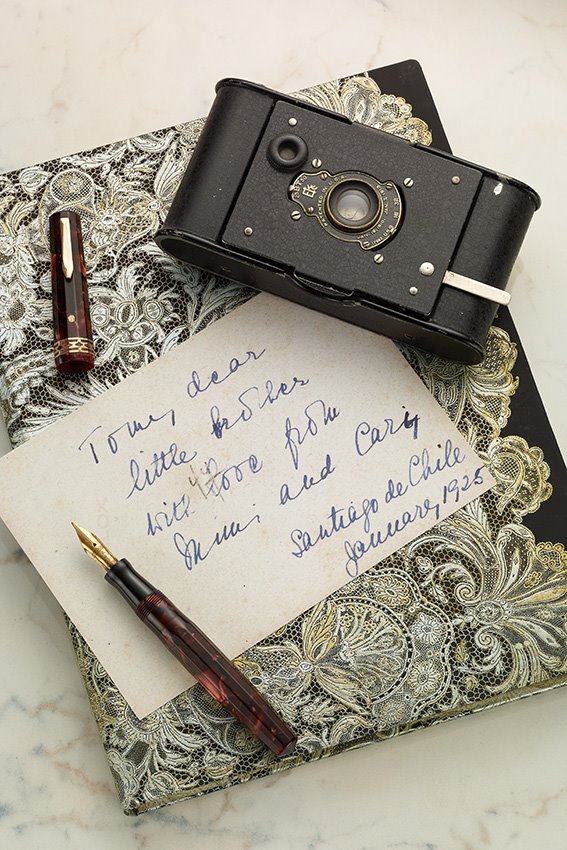 To my dear
little brother
with love from
Mimi and
Santiago de Chile
January, 1925